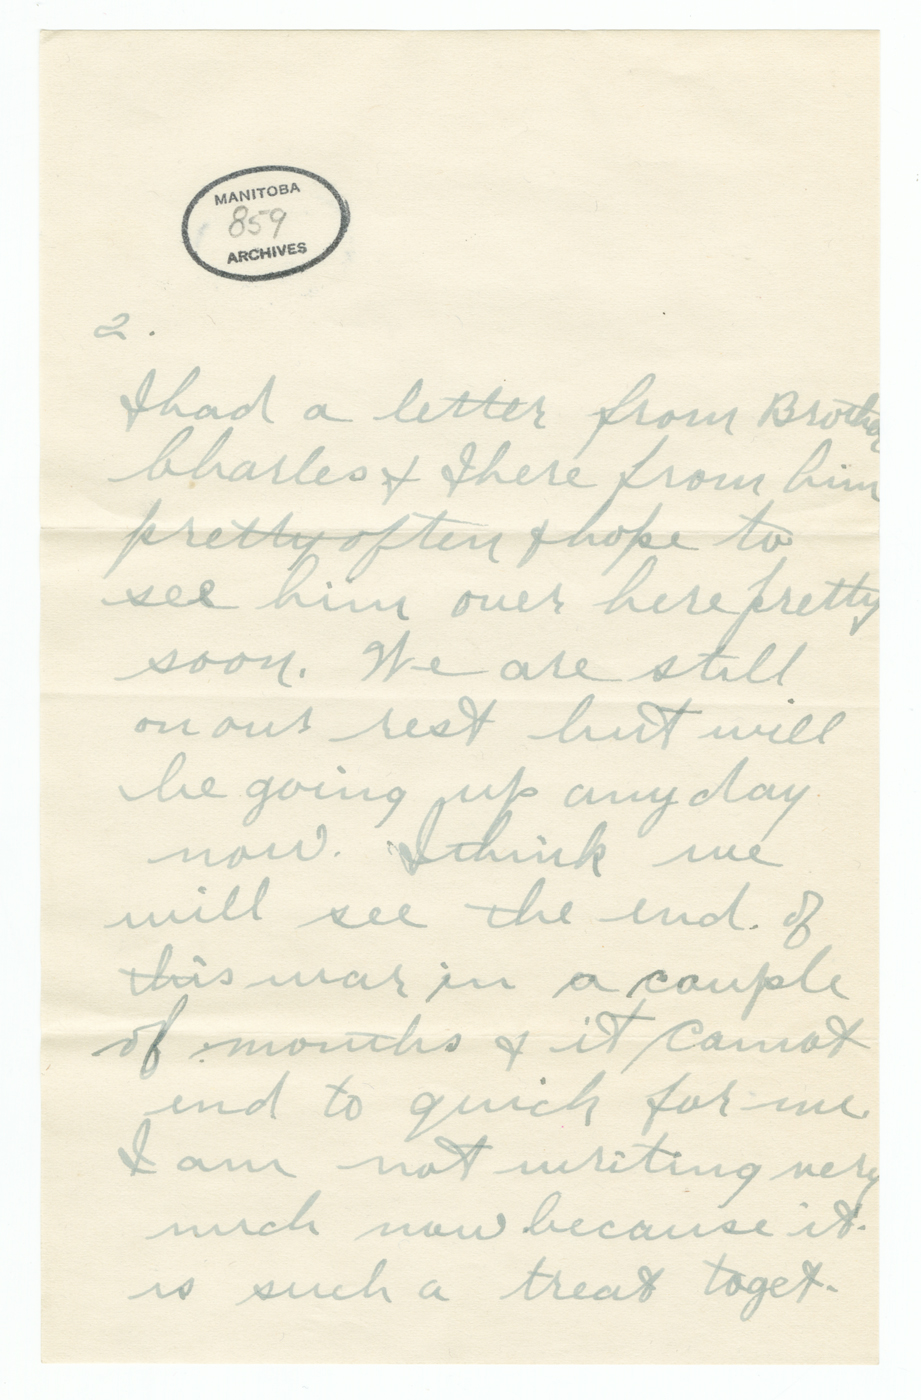 MANITOBA
859
ARCHIVES
2.
I had a letter from Brother
Charles & I here from him
pretty often & hope to
see him over here pretty
soon. We are still
on our rest but will
be going up any day
now. I think we
will see the end of
this war in a couple
of months & it cannot
end to quick for me
I am not writing very
much now because it
is such a treat to get